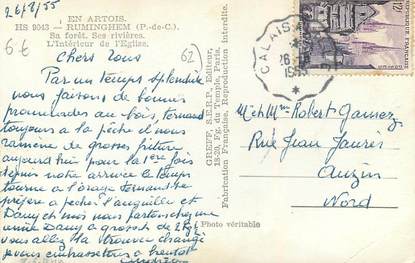 26/8/55
EN ARTOIS.
HS 9043 — RUMINGHEM (P.-de-C.)
Sa forêt. Ses rivières.
L'Intérieur de l'Eglise.
6 €
62
Chers tous
Par un temps splendide
nous faisons de bonnes
promenades au bois, Fernand
toujours à la pêche et nous
ramène de grosses friture
aujourd'hui pour la 1ère fois
depuis notre arrivée le temps
tourne à l'orage Fernand se
prépare a pêcher l'anguille et
Dany et moi nous partons chez une
amie Dany a grossit de 2 kg
vous allez la trouver changé
je vous embrasse a bientot
GREFF, S.E.R.P., Editeur,
18-20, Fg. du Temple, Paris.
Fabrication Française, Reproduction Interdite.
Photo véritable
CALAIS
26
1955
12F
POSTES
REPUBLIQUE FRANÇAISE
Mr et Mme Robert Gamez
Rue Jean Jaures
Anzin
Nord